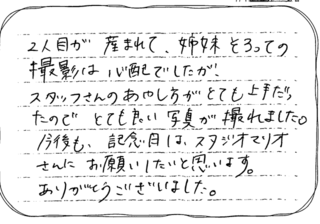 2人目が産まれて、姉妹そろっての
撮影は心配でしたが、
スタッフさんのあやし方がとても上手だっ
たのでとても良い写真が撮れました。
今後も、記念日は、スタジオマリオ
さんにお願いしたいと思います。
ありがとうございました。